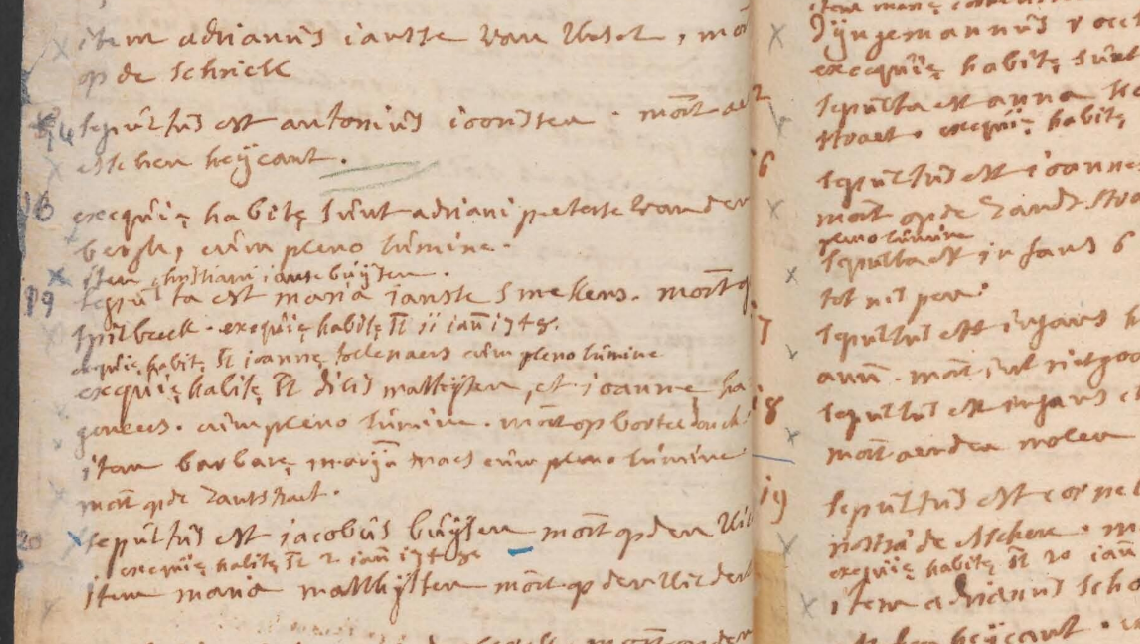 item adrianus iansse van Wesel, mort
op de schriek
14 sepultus est antonius ioosten. mort aen
esschen heijcant.
16 exequię habitę sunt adriani peeterse vanden
bergh, cum pleno lumine.
item christiani ianse buijsen.
19 sepulta est maria iansse smekers. mort op
spilbeeck. exequię habitę st 11 ian 1748.
exequię habitę st ioannę toelenaers cum pleno lumine
exequię habitę st matthijssen, et ioannę ha
goreets. cum pleno lumine. mort op
item barbarę marijn maes cum pleno lumine
mort op de zantstraet.
20 sepultus est iacobus buijsen mort op den wil
exequię habitę st 2 ian 1748
item maria matthijssen mort op den wilder
exequię habitę sunt
2 sepulta est anna
straet. exequię habitę
6 sepultus est ioannes
mort op de zandtstra
pleno lumine
sepulta est infans
tot nispen.
17 sepultus est infans
18 sepultus est infans
mort aen den molen
19 sepultus est corne
de esschen.
exequię habitę st 20 ian
item adrianus scho